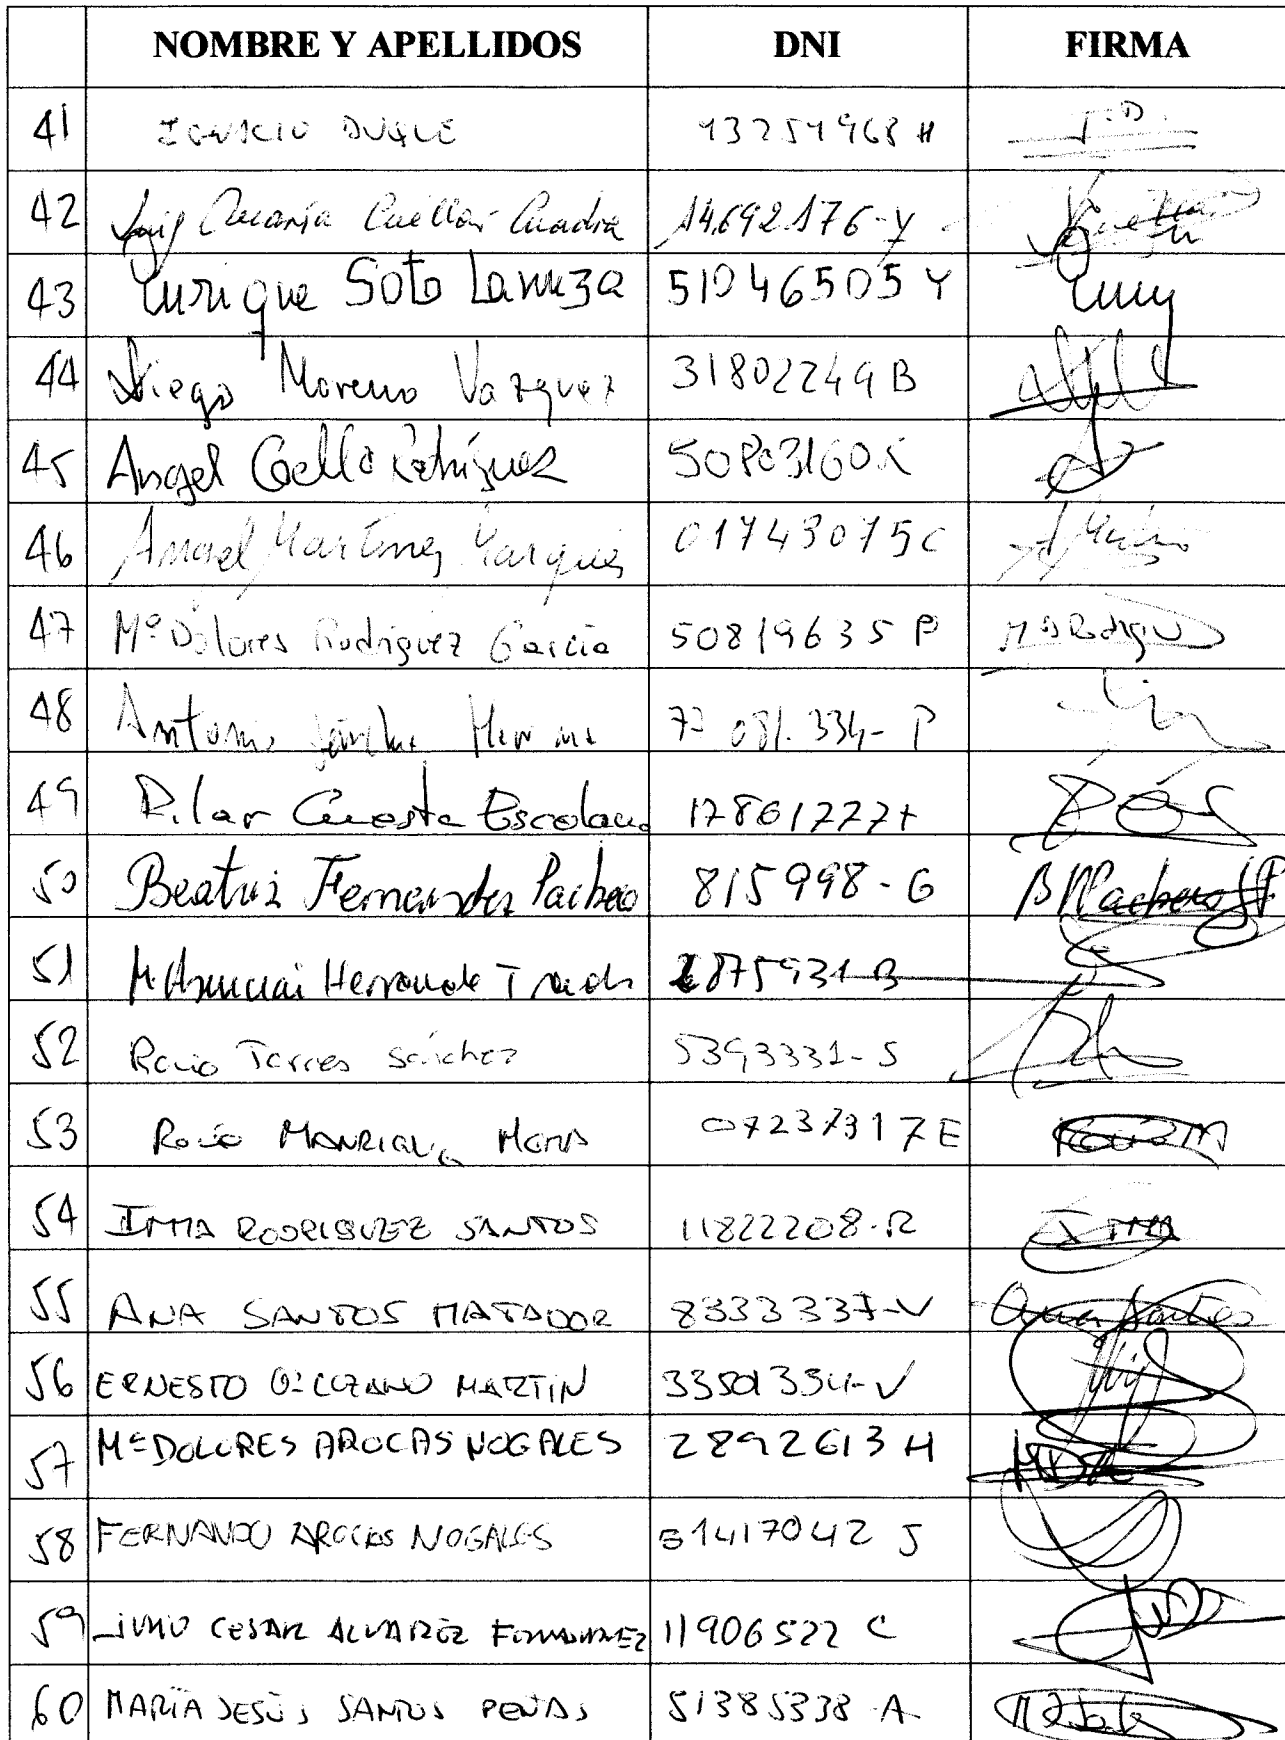 NOMBRE Y APELLIDOS DNI FIRMA
41 IGNACIO DUQUE 73251968 H J.D.
42 Luis María Cuéllar Cuadra 14.692.176-Y
43 Enrique Soto Lanuza 51046505 Y
44 Diego Moreno Vazquez 31802249 B
45 Angel Coello Rodríguez 50803160
46 Angel Martinez Marques 01743075 C
47 Mª Dolores Rodriguez García 50819635 P
48 Antonio 77 081.334- P
49 Pilar Cuesta Escolano
50 Beatriz Fernandez Pacheco 815998-G
51 875931-B
52 Rocío Torres Sánchez 5393331-S
53 Rocío MANRIQUE MORA 07237317 E
54 IMMA RODRIGUEZ SANTOS 11822208-R IMMA
55 ANA SANTOS MATADOR 8333337-V Ana Santos
56 ERNESTO LOZANO MARTIN 33501334-V
57 Mª DOLORES AROCAS NOGALES 2892613 H
58 FERNANDO AROCAS NOGALES 51417042 J
59 JULIO CESAR ALVAREZ FERNANDEZ 11906522 C
60 MARÍA JESÚS SANTOS PEÑAS 51385338-A